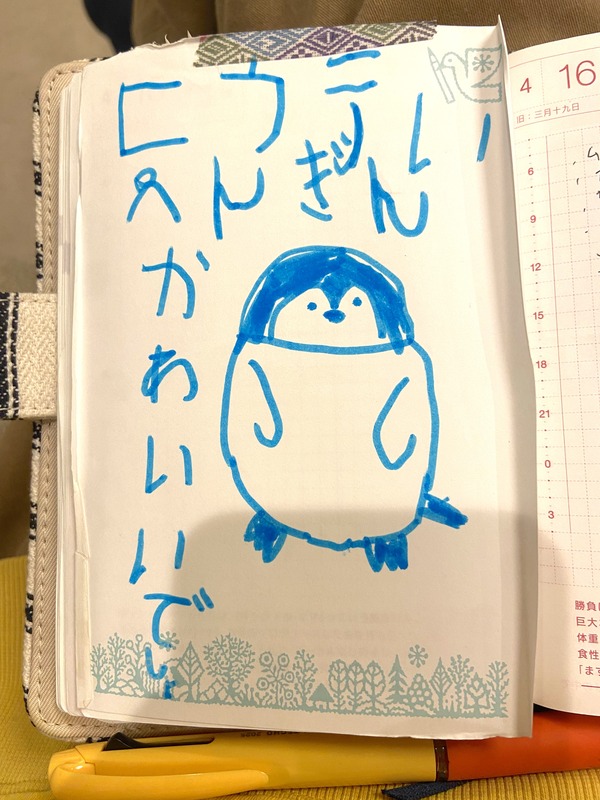 コウテい
ぺんぎん
かわいいでしょ
4 16
旧:三月十九日
6
9
12
15
18
21
0
3
勝負
巨大
体重
食性
「ま